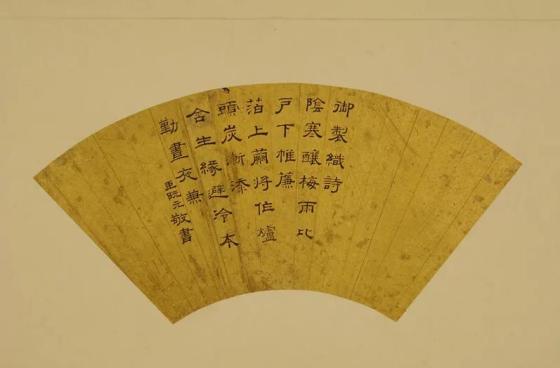 御製織詩
陰寒釀梅雨比
戶下帷簾
箔上繭將作爐
頭炭漸添
含生緣避冷本
勤晝夜兼
臣阮元敬書